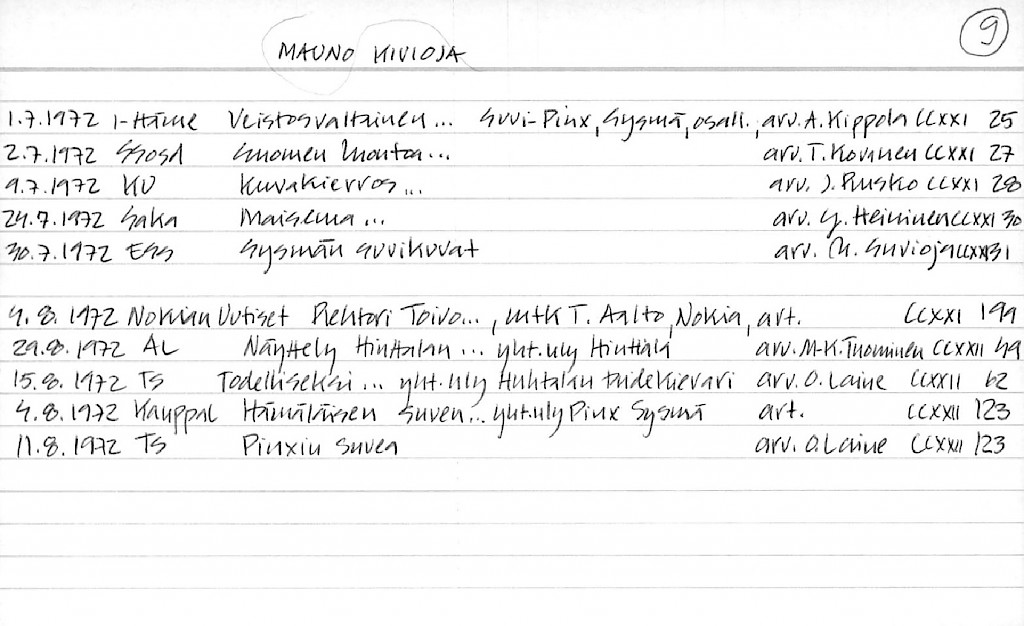 9
MAUNO KIVIOJA
1.7.1972 I-Häme Veistosvaltainen... Suvi-Pinx, Sysmä, osall., arv. A. Kippola CCXXI 25
2.7.1972 SSosd Suomen Montta... arv. T. Kovanen CCXXI 27
9.7.1972 KU Kuvakierros... arv. J. Rusko CCXXI 28
24.7.1972 SaKa Maisema... arv. Y. Heininen CCXXI 30
30.7.1972 ESS Sysmän suvikuvat arv. M. Suvioja CCXXI 31
4.8.1972 Nokian Uutiset Rehtori Toivo..., mtk T. Aalto, Nokia, art. CCXXI 199
29.8.1972 AL Näyttely Hinttalan... yht.nly Hinttala arv. M-K. Tuominen CCXXII 49
15.8.1972 TS Todelliseksi... yht.nly Huhtalan taidekievari arv. O. Laine CCXXII 62
4.8.1972 Kauppal Hämäläisen suven... yht.nly Pinx Sysmä art. CCXXII 123
11.8.1972 TS Pinxin suvea arv. O. Laine CCXXII 123